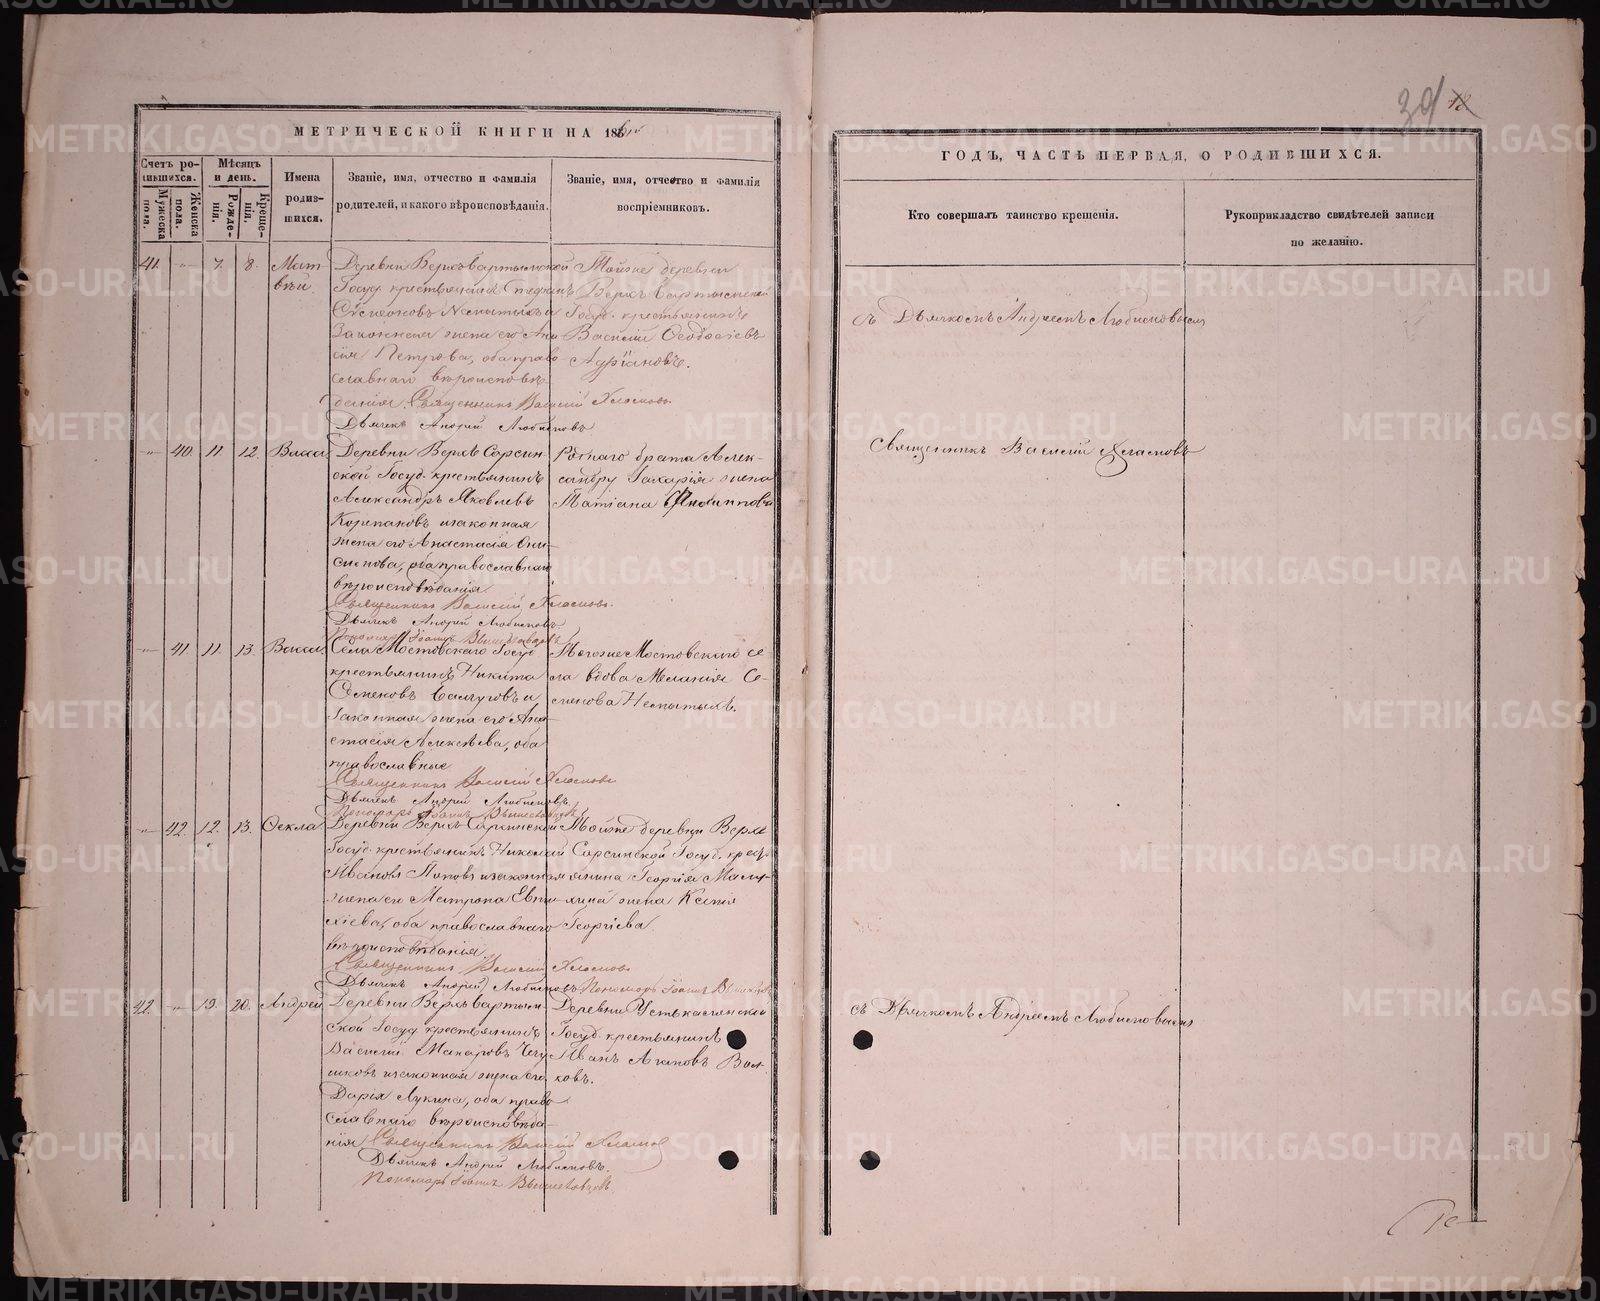 39 18
МЕТРИЧЕСКОЙ КНИГИ НА 186
ГОДЪ, ЧАСТЬ ПЕРВАЯ, О РОДИВШИХСЯ.
Счетъ родившихся.
Мужеска пола.
Женска пола.
Мѣсяцъ и день.
Рожденія.
Крещенія.
Имена родившихся.
Званіе, имя, отчество и фамилія родителей, и какого вѣроисповѣданія.
Званіе, имя, отчество и фамилія воспріемниковъ.
Кто совершалъ таинство крещенія.
Рукоприкладство свидѣтелей записи по желанію.
41. -"- 7. 8. Матвѣй
Деревни Верхъбартымской
Госуд. крестьянинъ
Симеоновъ Немытыхъ и
Законная жена его Ана-
сія Петрова, оба право-
славнаго вѣроисповѣ-
данія. Священникъ Василій Хламовъ
Дьячекъ Андрей Любимовъ
Тойже деревни
Верхъ Бартымской
Госуд. крестьянинъ
Василій Ѳеодосіевъ
Адріановъ.
съ Дьячкомъ Андреемъ Любимовымъ
-"- 40. 11. 12. Васса
Деревни Верхъ Сарсин-
ской Госуд. крестьянинъ
Александръ Яковлевъ
Корепановъ изаконная
жена его Анастасія Они-
симова, оба православнаго
вѣроисповѣданія
Священникъ Василій Хламовъ
Дьячекъ Андрей Любимовъ
Пономарь Іоаннъ
Роднаго брата Алек-
сандру Захарія жена
Татіана Филиппова
Священникъ Василій Хламовъ
-"- 41. 11. 13. Васса
Села Мостовскаго Госуд
крестьянинъ Никита
Семеновъ и
Законная жена его Ана-
стасія Алексѣева, оба
православные
Священникъ Василій Хламовъ
Дьячекъ Андрей Любимовъ
Пономарь Іоаннъ
Тогоже Мостовскаго се-
ла вдова Меланія Се-
менова Немытыхъ.
-"- 42. 12. 13. Ѳекла
Деревни Верхъ Сарсинской
Госуд. крестьянинъ Николай
Ивановъ Поповъ изаконная
жена его Матрона Евти-
хіева, оба православнаго
вѣроисповѣданія
Священникъ Василій Хламовъ
Дьячекъ Андрей Любимовъ Пономарь Іоаннъ
Тойже деревни Верхъ
Сарсинской Госуд. крес-
янина Георгія
жена Ксенія
Георгіева
42. -"- 19. 20. Андрей
Деревни Верхъбартым-
ской Госуд крестьянинъ
Василій Макаровъ
изаконная жена его
Дарья Лукина, оба право-
славнаго вѣроисповѣда-
нія Священникъ Василій Хламовъ
Дьячекъ Андрей Любимовъ.
Пономарь Іоаннъ
Деревни
Госуд. крестьянинъ
Иванъ Агаповъ Вол-
ковъ.
съ Дьячкомъ Андреемъ Любимовымъ
METRIKI.GASO-URAL.RU